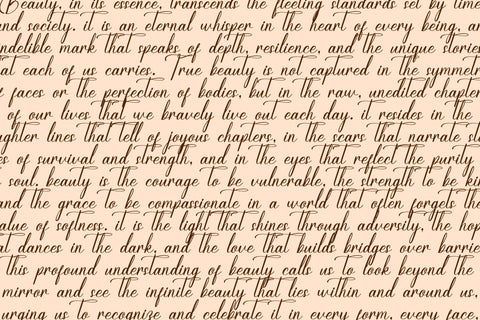 Beauty, in its essence, transcends the fleeting standards set by time
and society. it is an eternal whisper in the heart of every being, an
indelible mark that speaks of depth, resilience, and the unique stories
at each of us carries. True beauty is not captured in the symmetr
faces or the perfection of bodies, but in the raw, unedited chapter
of our lives that we bravely live out each day. it resides in the
ughter lines that tell of joyous chapters, in the scars that narrate st
es of survival and strength, and in the eyes that reflect the purity
soul. beauty is the courage to be vulnerable, the strength to be kin
and the grace to be compassionate in a world that often forgets the
alue of softness. it is the light that shines through adversity, the hop
at dances in the dark, and the love that builds bridges over barrie
this profound understanding of beauty calls us to look beyond the
mirror and see the infinite beauty that lies within and around us,
urging us to recognize and celebrate it in every form, every face,